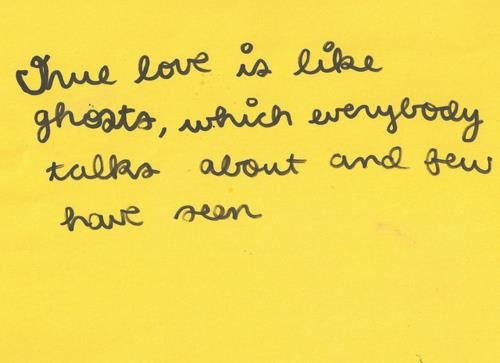 True love is like
ghosts, which everybody
talks about and few
have seen